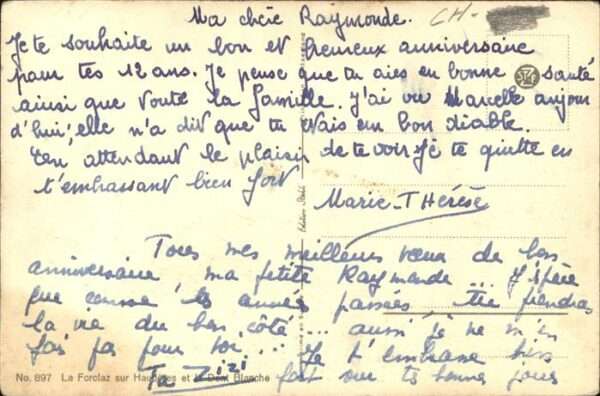 Ma chère Raymonde.
CH-
Je te souhaite un bon et heureux anniversaire
pour tes 12 ans. Je pense que tu aies en bonne santé
ainsi que toute la famille. J'ai vu Marcelle aujour
d'hui, elle n'a dit que tu étais en bon diable.
En attendant le plaisir de te voir Je te quitte en
t'embrassant bien fort
Marie-Thérèse
Tous mes meilleurs vœux de bon
anniversaire, ma petite Raymonde ... J'espère
que comme les années passées, tu prendras
la vie du bon côté ... aussi je ne m'en
fais pas pour toi ... Je t'embrasse bien
fort sur tes bonnes joues
Ta Zizi
No. 897 La Forclaz sur Haudères et la Dent Blanche
Edition Stehli